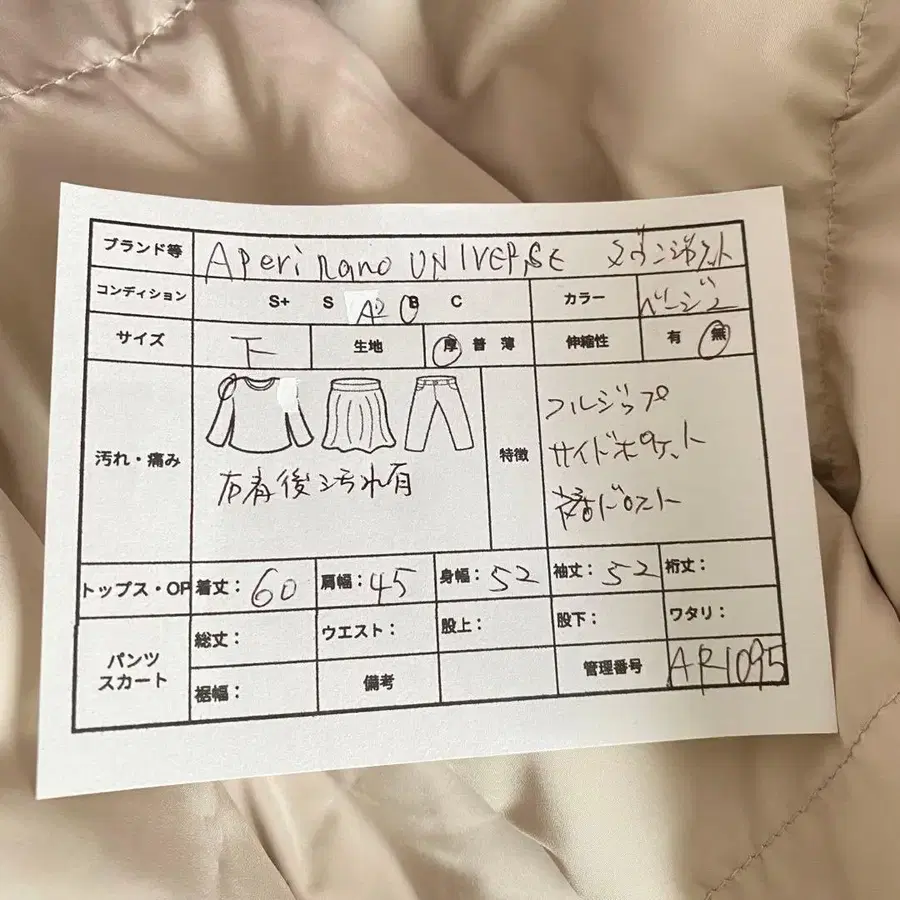 ブランド等 Aperi nano UNIVERSE ダウンジャケット
コンディション S+ S A B C カラー ベージュ
サイズ F 生地 厚 普 薄 伸縮性 有 無
汚れ・痛み 右肩後ろ汚れ有
特徴 フルジップ
サイドポケット
裾ドロスト
トップス・OP 着丈：60 肩幅：45 身幅：52 袖丈：52 裄丈：
パンツ
スカート
総丈： ウエスト： 股上： 股下： ワタリ：
裾幅： 備考 管理番号 AR1095